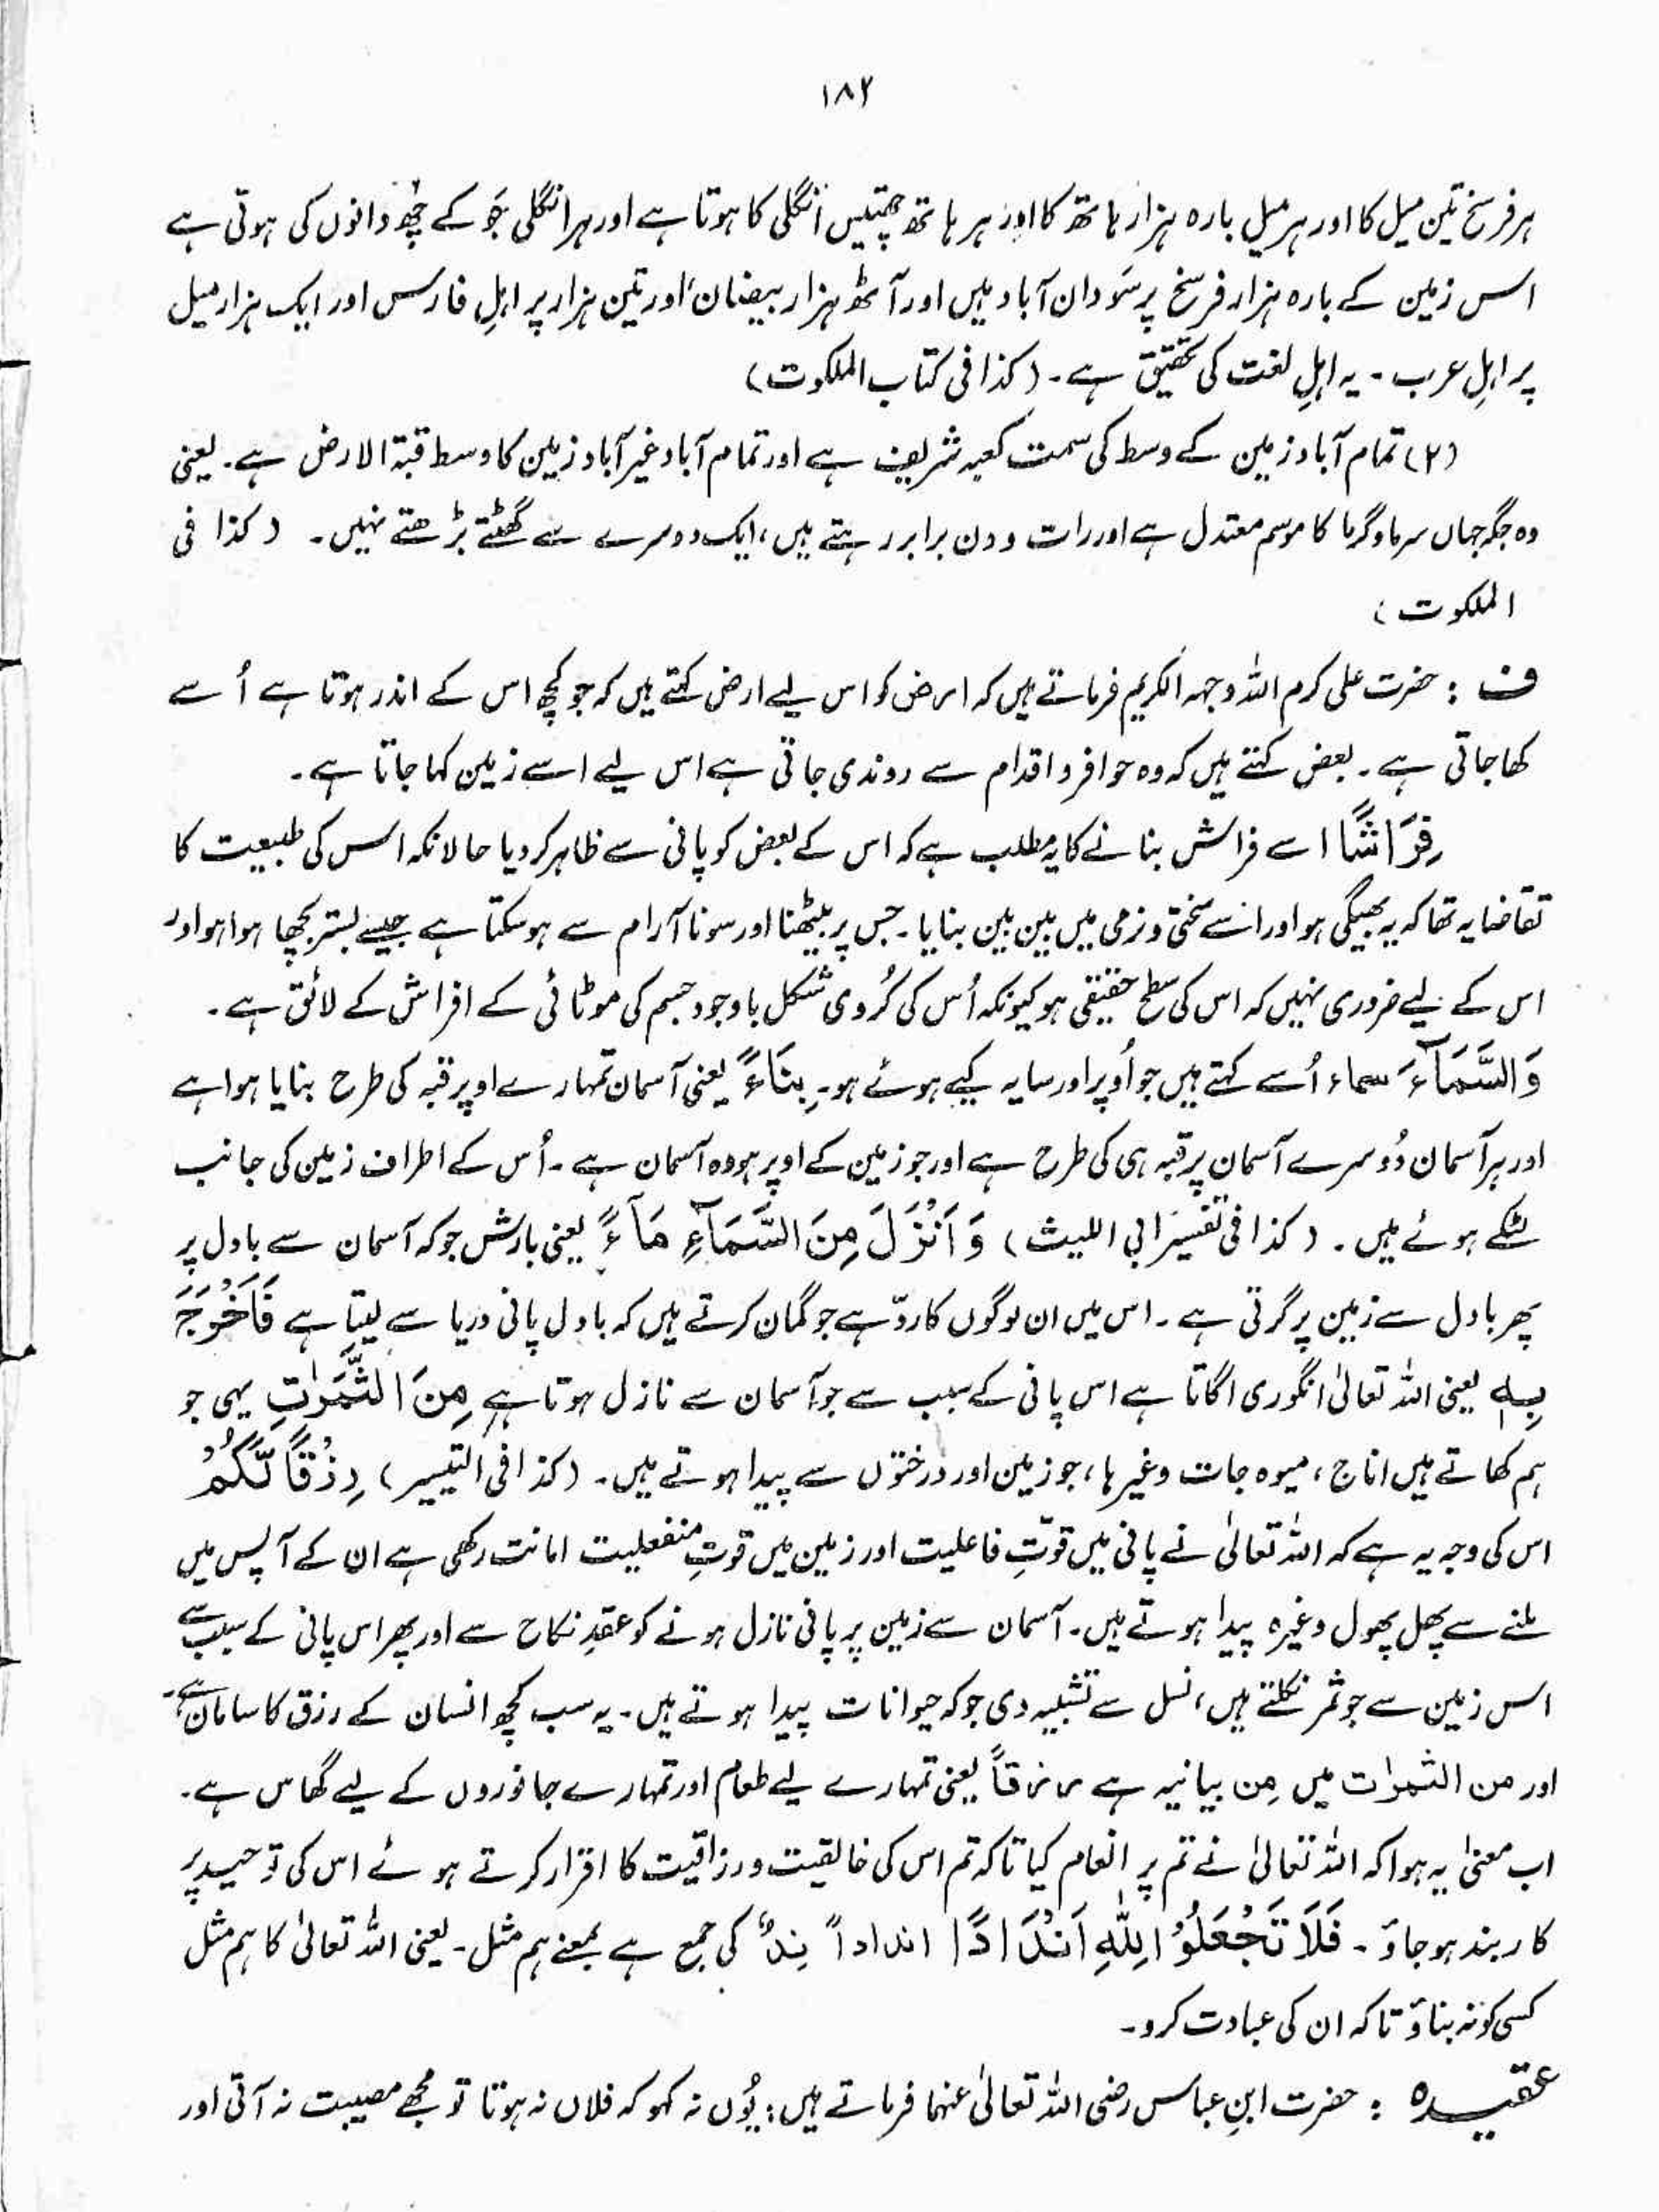 ۱۸۲
ہر فرسخ تین میل کا اور ہر میل بارہ ہزار ہاتھ کا اور ہر ہاتھ چھتیس انگلی کا ہوتا ہے اور ہر انگلی جَو کے چھ دانوں کی ہوتی ہے
اس زمین کے بارہ ہزار فرسخ پر سَودان آباد ہیں اور آٹھ ہزار بیضان، اور تین ہزار پر اہلِ فارس اور ایک ہزار میل
پر اہلِ عرب ۔ یہ اہلِ لغت کی تحقیق ہے ۔ (کذا فی کتاب الملکوت)
(۲) تمام آباد زمین کے وسط کی سمت کعبہ شریف ہے اور تمام آباد غیر آباد زمین کا وسط قبۃ الارض ہے ۔ یعنی
وہ جگہ جہاں سرما و گرما کا موسم معتدل ہے اور رات و دن برابر رہتے ہیں، ایک دوسرے سے گھٹتے بڑھتے نہیں ۔ (کذا فی
الملکوت)
ف : حضرت علی کرم اللہ وجہہ الکریم فرماتے ہیں کہ ارض کو اس لیے ارض کہتے ہیں کہ جو کچھ اس کے اندر ہوتا ہے اُسے
کھا جاتی ہے ۔ بعض کہتے ہیں کہ وہ حوافر و اقدام سے روندی جاتی ہے اس لیے اسے زمین کہا جاتا ہے ۔
فِرَاشًا اسے فراش بنانے کا یہ مطلب ہے کہ اس کے بعض کو پانی سے ظاہر کر دیا حالانکہ اس کی طبیعت کا
تقاضا یہ تھا کہ یہ بھیگی ہو اور اسے سختی و نرمی میں بین بین بنایا ۔ جس پر بیٹھنا اور سونا آرام سے ہوسکتا ہے جیسے بستر بچھا ہوا ہو اور
اس کے لیے ضروری نہیں کہ اس کی سطح حقیقی ہو کیونکہ اُس کی کُروی شکل باوجود جسم کی موٹائی کے افراش کے لائق ہے ۔
وَالسَّمَآءَ سماء اُسے کہتے ہیں جو اُوپر اور سایہ کیے ہوئے ہو ۔ بِنَاءً یعنی آسمان تمہارے اوپر قبہ کی طرح بنایا ہوا ہے
اور ہر آسمان دُوسرے آسمان پر قبہ ہی کی طرح ہے اور جو زمین کے اوپر ہو وہ آسمان ہے ۔ اُس کے اطراف زمین کی جانب
لٹکے ہوئے ہیں ۔ (کذا فی تفسیر ابی اللیث) وَاَنْزَلَ مِنَ السَّمَآءِ مَآءً یعنی بارش جو کہ آسمان سے بادل پر
پھر بادل سے زمین پر گرتی ہے ۔ اس میں ان لوگوں کا ردّ ہے جو گمان کرتے ہیں کہ بادل پانی دریا سے لیتا ہے فَاَخْرَجَ
بِہٖ یعنی اللہ تعالیٰ انگوری اگاتا ہے اس پانی کے سبب سے جو آسمان سے نازل ہوتا ہے مِنَ الثَّمَرٰتِ یہی جو
ہم کھاتے ہیں اناج، میوہ جات وغیرہا، جو زمین اور درختوں سے پیدا ہوتے ہیں ۔ (کذا فی التیسیر) رِزْقًا لَّکُمْ
اس کی وجہ یہ ہے کہ اللہ تعالیٰ نے پانی میں قوتِ فاعلیت اور زمین میں قوتِ منفعلیت امانت رکھی ہے ان کے آپس میں
ملنے سے پھل پھول وغیرہ پیدا ہوتے ہیں ۔ آسمان سے زمین پر پانی نازل ہونے کو عقدِ نکاح سے اور پھر اس پانی کے سبب سے
اس زمین سے جو ثمر نکلتے ہیں، نسل سے تشبیہ دی جو کہ حیوانات پیدا ہوتے ہیں ۔ یہ سب کچھ انسان کے رزق کا سامان ہے ۔
اور من الثمرات میں مِن بیانیہ ہے رزقاً یعنی تمہارے لیے طعام اور تمہارے جانوروں کے لیے گھاس ہے ۔
اب معنیٰ یہ ہوا کہ اللہ تعالیٰ نے تم پر انعام کیا تاکہ تم اس کی خالقیت و رزاقیت کا اقرار کرتے ہوئے اس کی توحید پر
کاربند ہوجاؤ ۔ فَلَا تَجْعَلُوْا لِلّٰہِ اَنْدَادًا انداداً نِدٌّ کی جمع ہے بمعنے ہم مثل ۔ یعنی اللہ تعالیٰ کا ہم مثل
کسی کو نہ بناؤ تاکہ ان کی عبادت کرو ۔
عقیدہ : حضرت ابنِ عباس رضی اللہ تعالیٰ عنہما فرماتے ہیں : یُوں نہ کہو کہ فلاں نہ ہوتا تو مجھے مصیبت نہ آتی اور